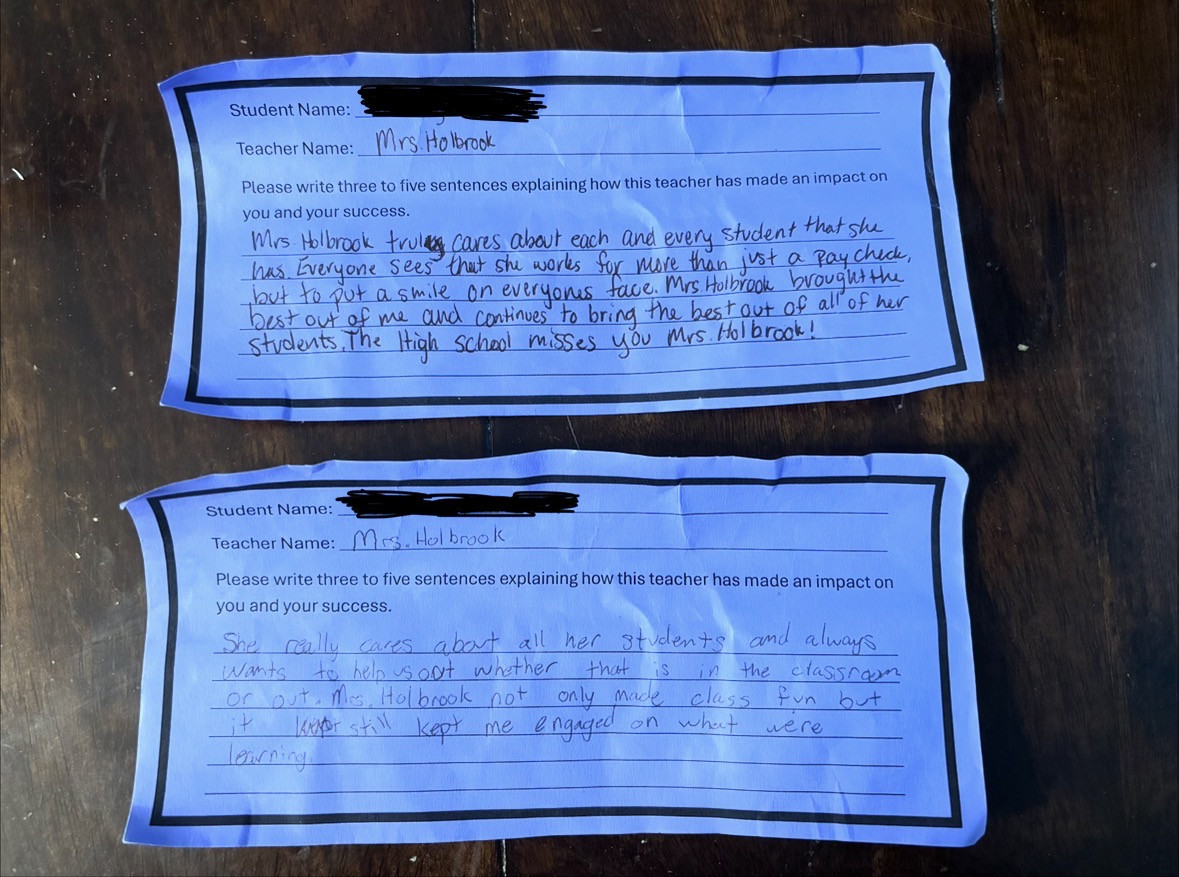 Student Name:
Teacher Name: Mrs. Holbrook
Please write three to five sentences explaining how this teacher has made an impact on
you and your success.
Mrs Holbrook truly cares about each and every student that she
has. Everyone sees that she works for more than just a paycheck,
but to put a smile on everyones face. Mrs. Holbrook brought the
best out of me and continues to bring the best out of all of her
students. The High school misses you Mrs. Holbrook!
Student Name:
Teacher Name: Mrs. Holbrook
Please write three to five sentences explaining how this teacher has made an impact on
you and your success.
She really cares about all her students and always
wants to help us out whether that is in the classroom
or out. Mrs. Holbrook not only made class fun but
it still kept me engaged on what were
learning.